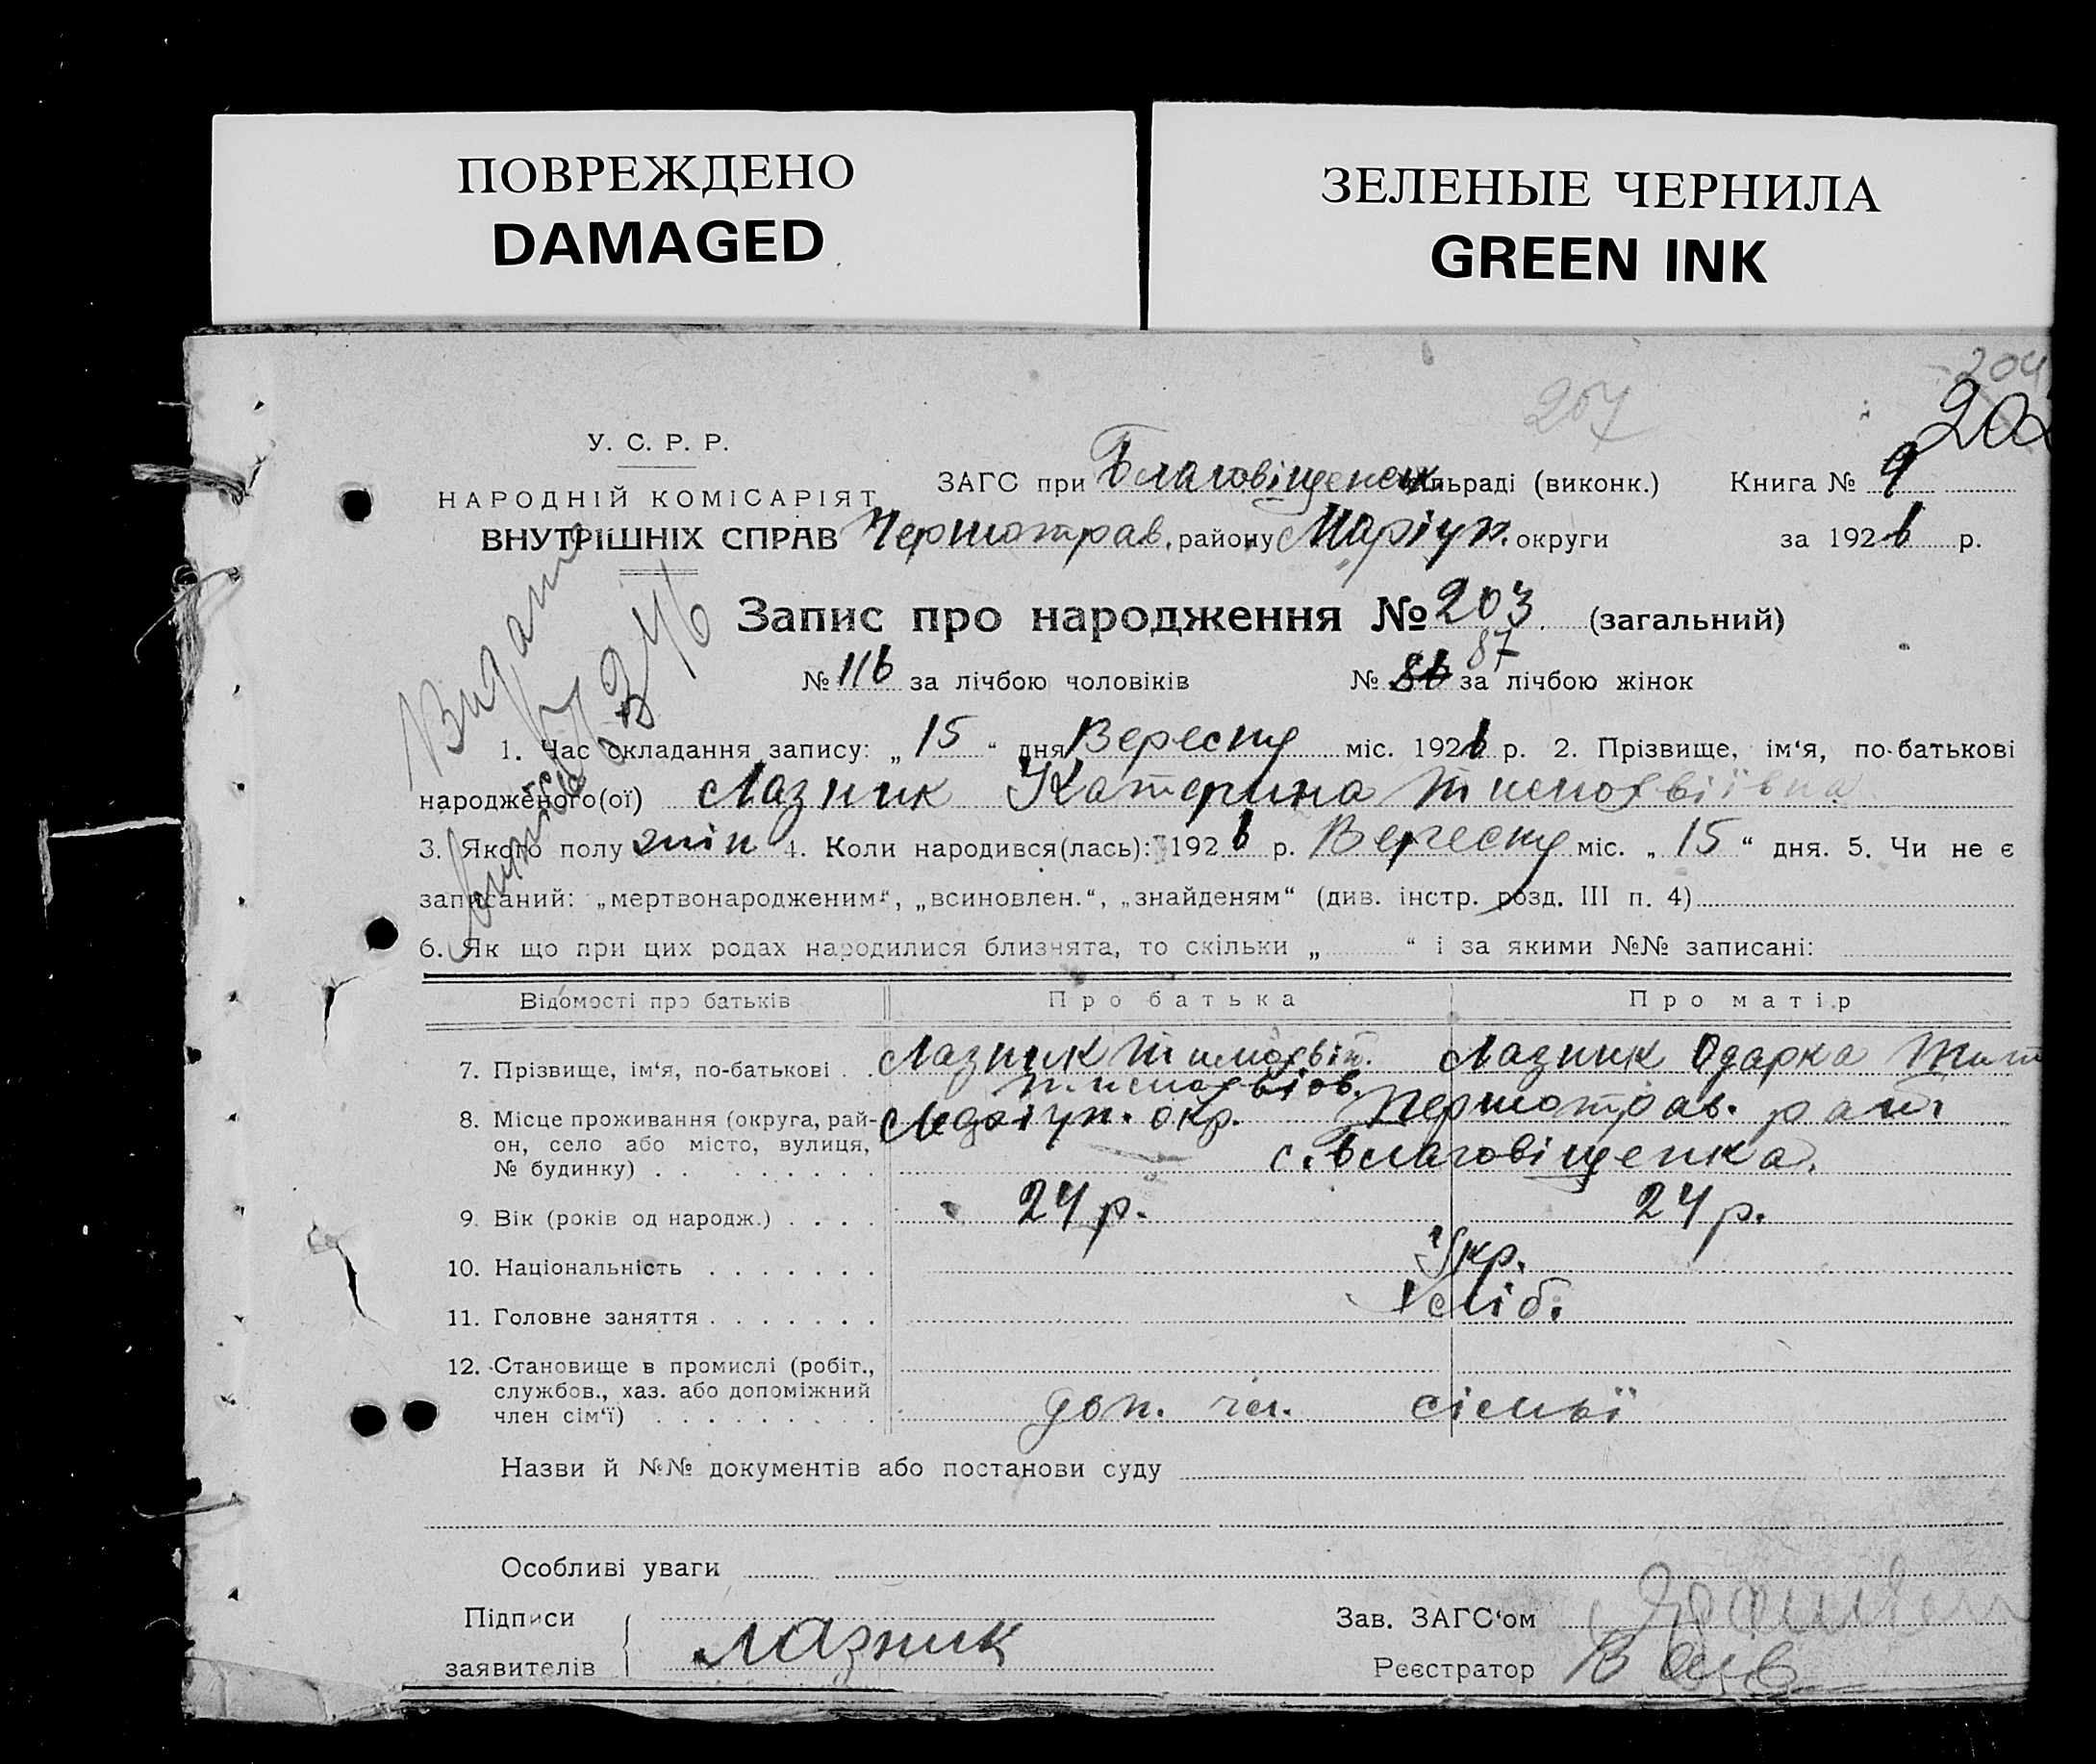 ПОВРЕЖДЕНО
DAMAGED
ЗЕЛЕНЫЕ ЧЕРНИЛА
GREEN INK
204
207
202
У. С. Р. Р.
НАРОДНІЙ КОМІСАРІЯТ
ВНУТРІШНІХ СПРАВ
ЗАГС при Благовіщенськ сільраді (виконк.) Книга № 9
Першотрав. району Маріуп. округи за 1926 р.
Запис про народження № 203 (загальний)
№ 116 за лічбою чоловіків № 86 87 за лічбою жінок
Видано
1. Час складання запису: „ 15 “ дня Вересню міс. 1926 р. 2. Прізвище, ім‘я, по-батькові
народженого(ої) Лазник Катерина Тимофвіївна
3. Якого полу жін 4. Коли народився(лась): 1926 р. Вересню міс. „ 15 “ дня. 5. Чи не є
записаний: „мертвонародженим“, „всиновлен.“, „знайденям“ (див. інстр. розд. III п. 4)
6. Як що при цих родах народилися близнята, то скільки „ “ і за якими №№ записані:
Відомості про батьків Про батька Про матір
7. Прізвище, ім‘я, по-батькові . . Лазник Тимофвій. Тимофвіов. Лазник Одарка Тит
8. Місце проживання (округа, рай-
он, село або місто, вулиця,
№ будинку) . . . . . . . . .
Маріуп. окр. Першотрав. рай.
с. Благовіщенка.
9. Вік (років од народж.) . . . . 24 р. 24 р.
10. Національність . . . . . . . Укр.
11. Головне заняття . . . . . . . Хліб.
12. Становище в промислі (робіт.,
службов., хаз. або допоміжний
член сім‘ї) . . . . . . .
доп. чл. сіемьї
Назви й №№ документів або постанови суду
Особливі уваги
Підписи
заявителів
Лазник
Зав. ЗАГС‘ом
Реєстратор